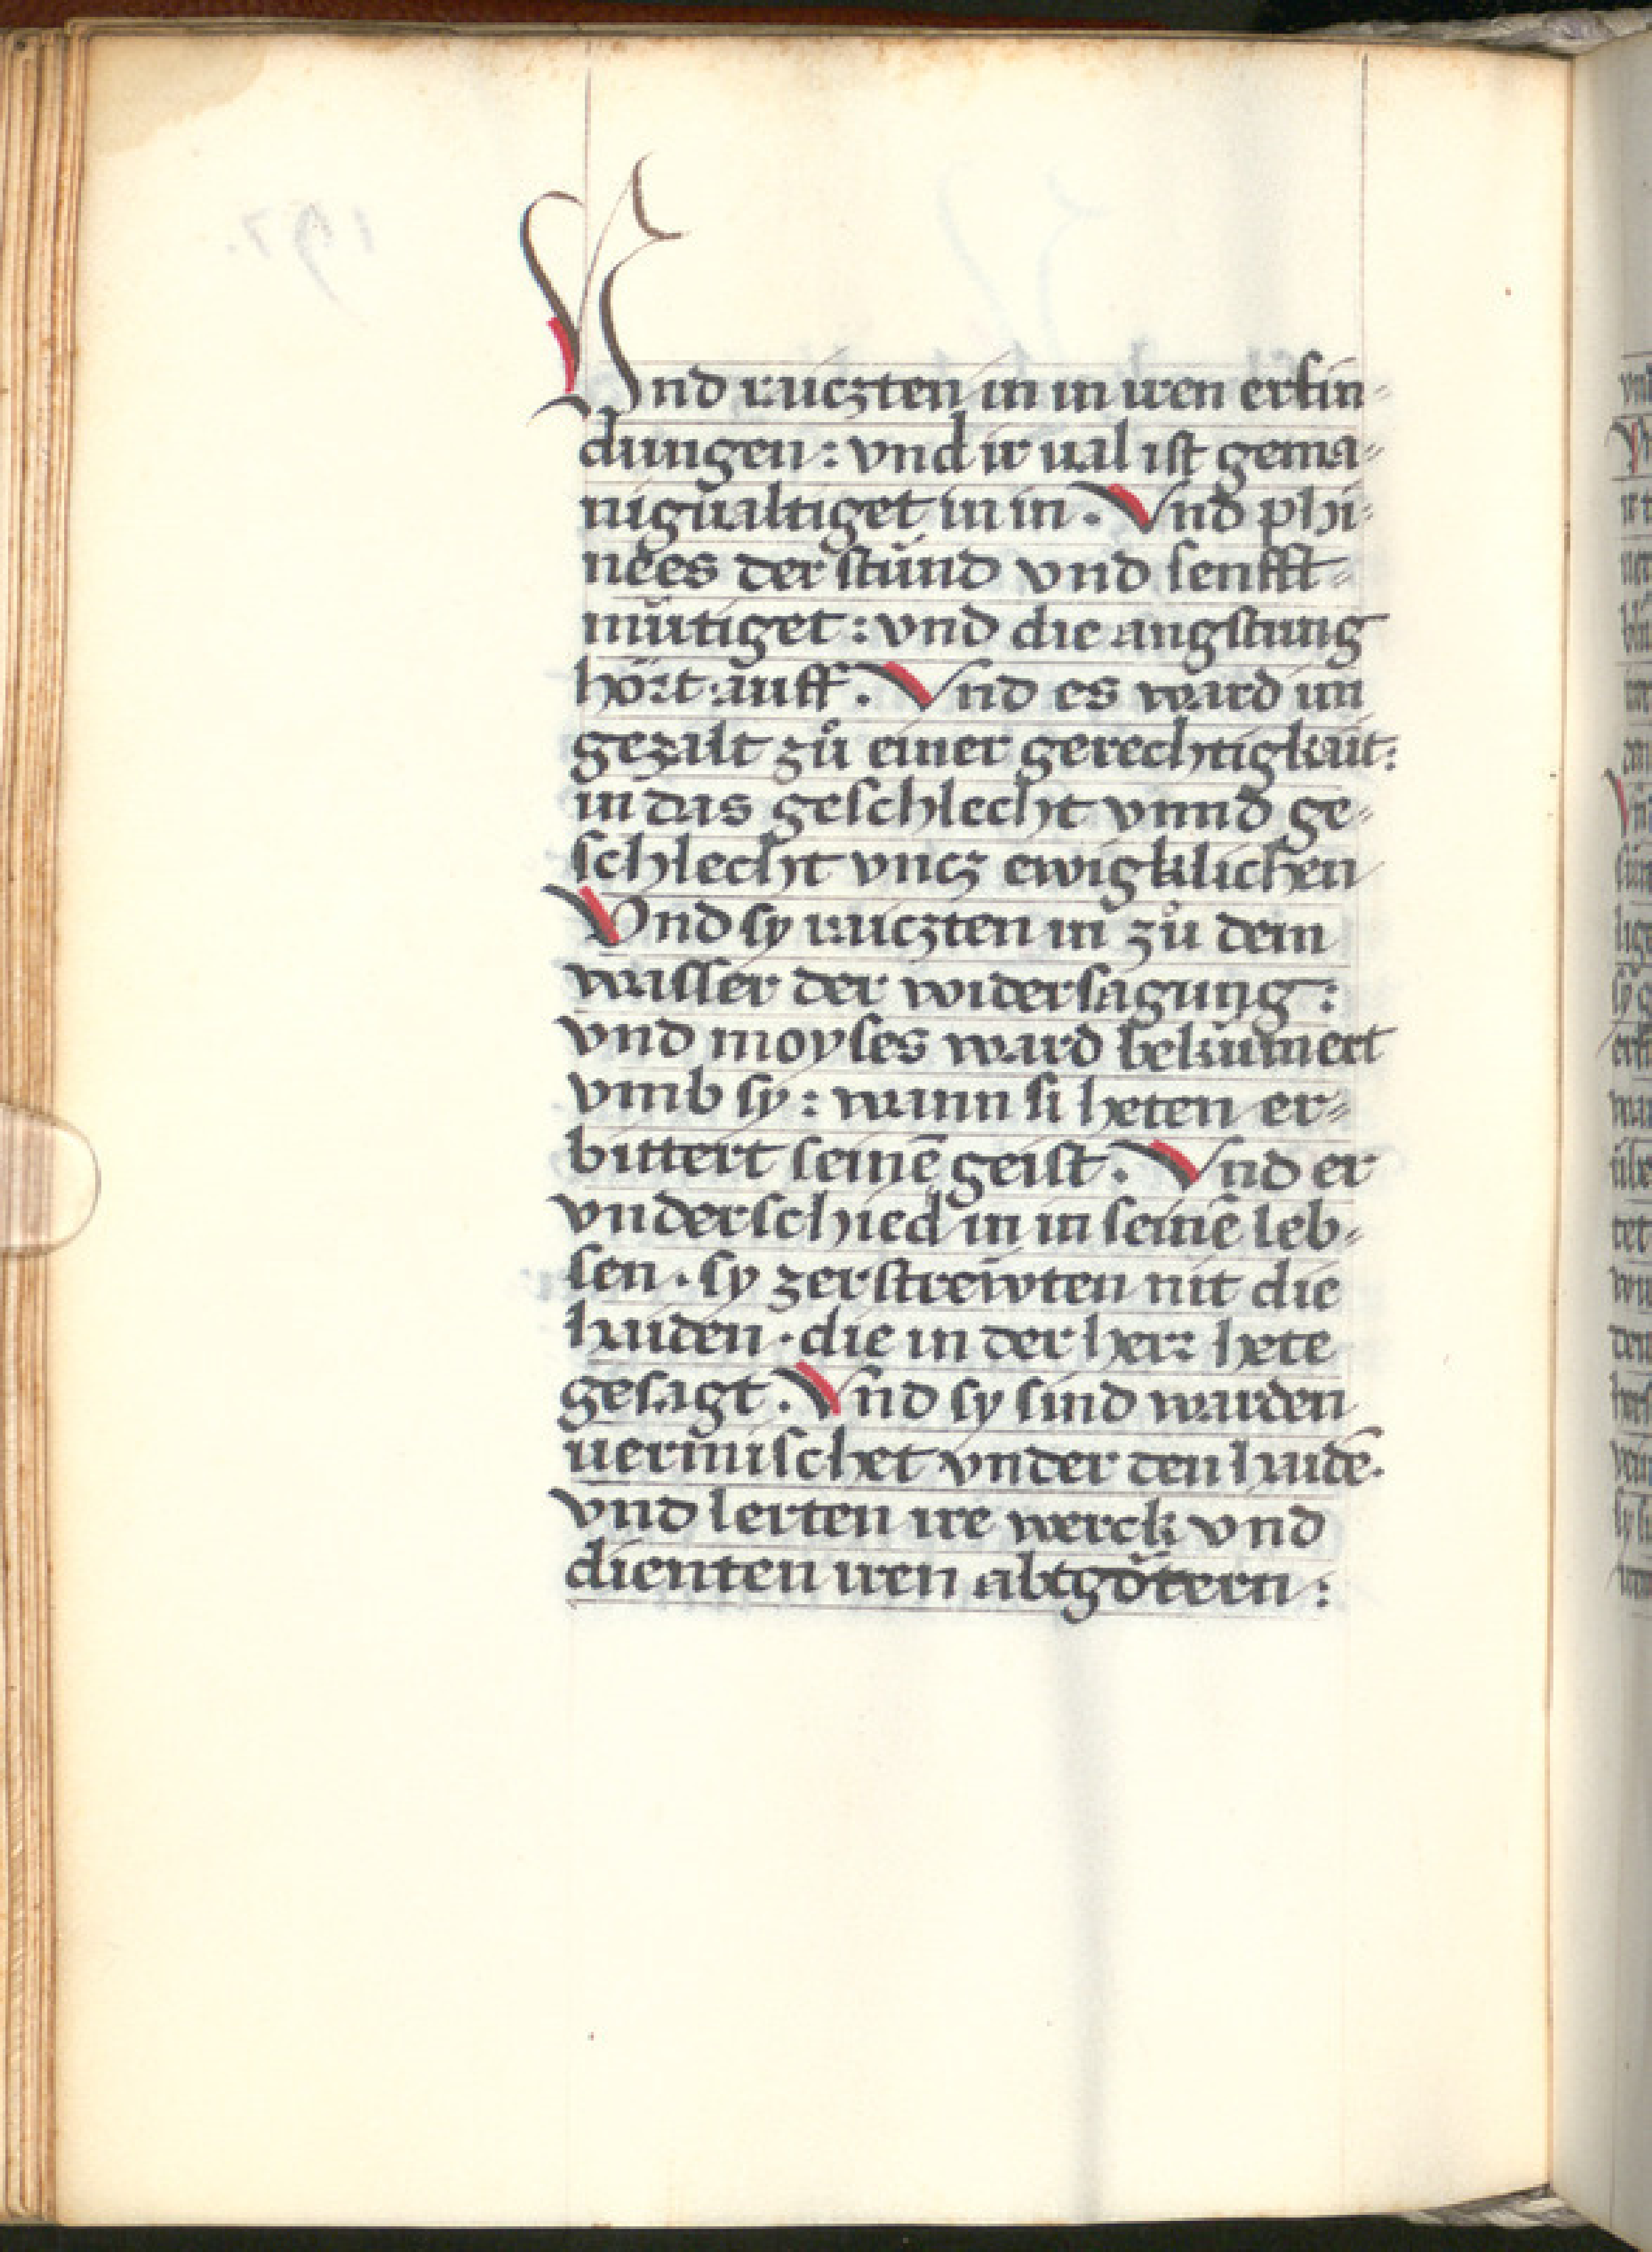 Vnd raiczten in in iren erfin⸗
dungen : vnd ir ual ist gema⸗
nigualtiget in in . Vnd phi⸗
nees der stůnd vnd senfft⸗
mu̇tiget : vnd die angstung
hört auff . Vnd es ward im
gezalt zů einer gerechtigkait :
in das geschlecht vnnd ge⸗
schlecht vncz ewigklichen
Vnd sy raiczten in zů dem
wasser der widersagung :
vnd moyses ward bekümert
vmb sy : wann si heten er⸗
bittert seinē geist . Vnd er
vnderschied in in seinē leb⸗
sen . sy zerstreẅten nit die
haiden . die in der herr hete
gesagt . Vnd sy sind warden
uermischet vnder den haidē .
vnd lerten ire werck vnd
dienten iren abtgötern :